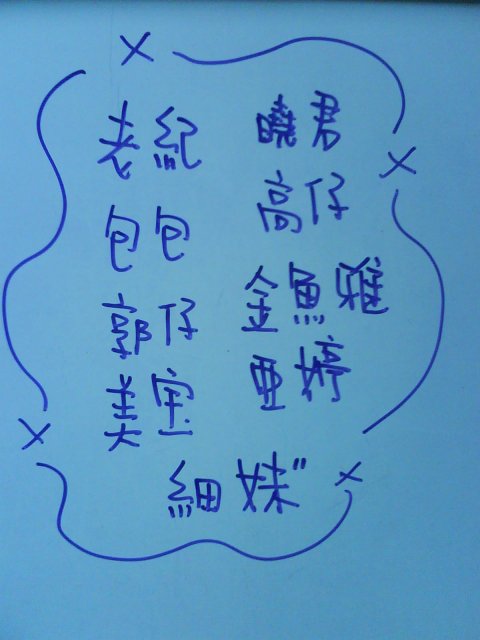 老紀 曉君
包包 高仔
郭仔 金魚雅
美宝 亜婷
細妹"